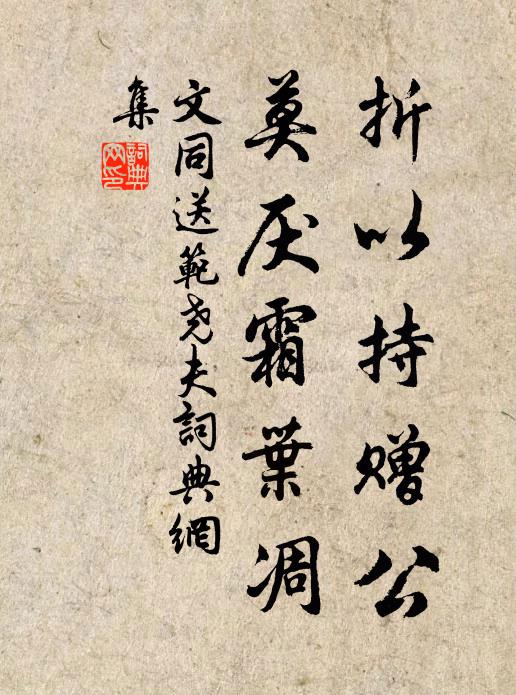 折以持赠公
莫厌霜葉凋
文同送範尧夫詞典網
集
詞典
网印